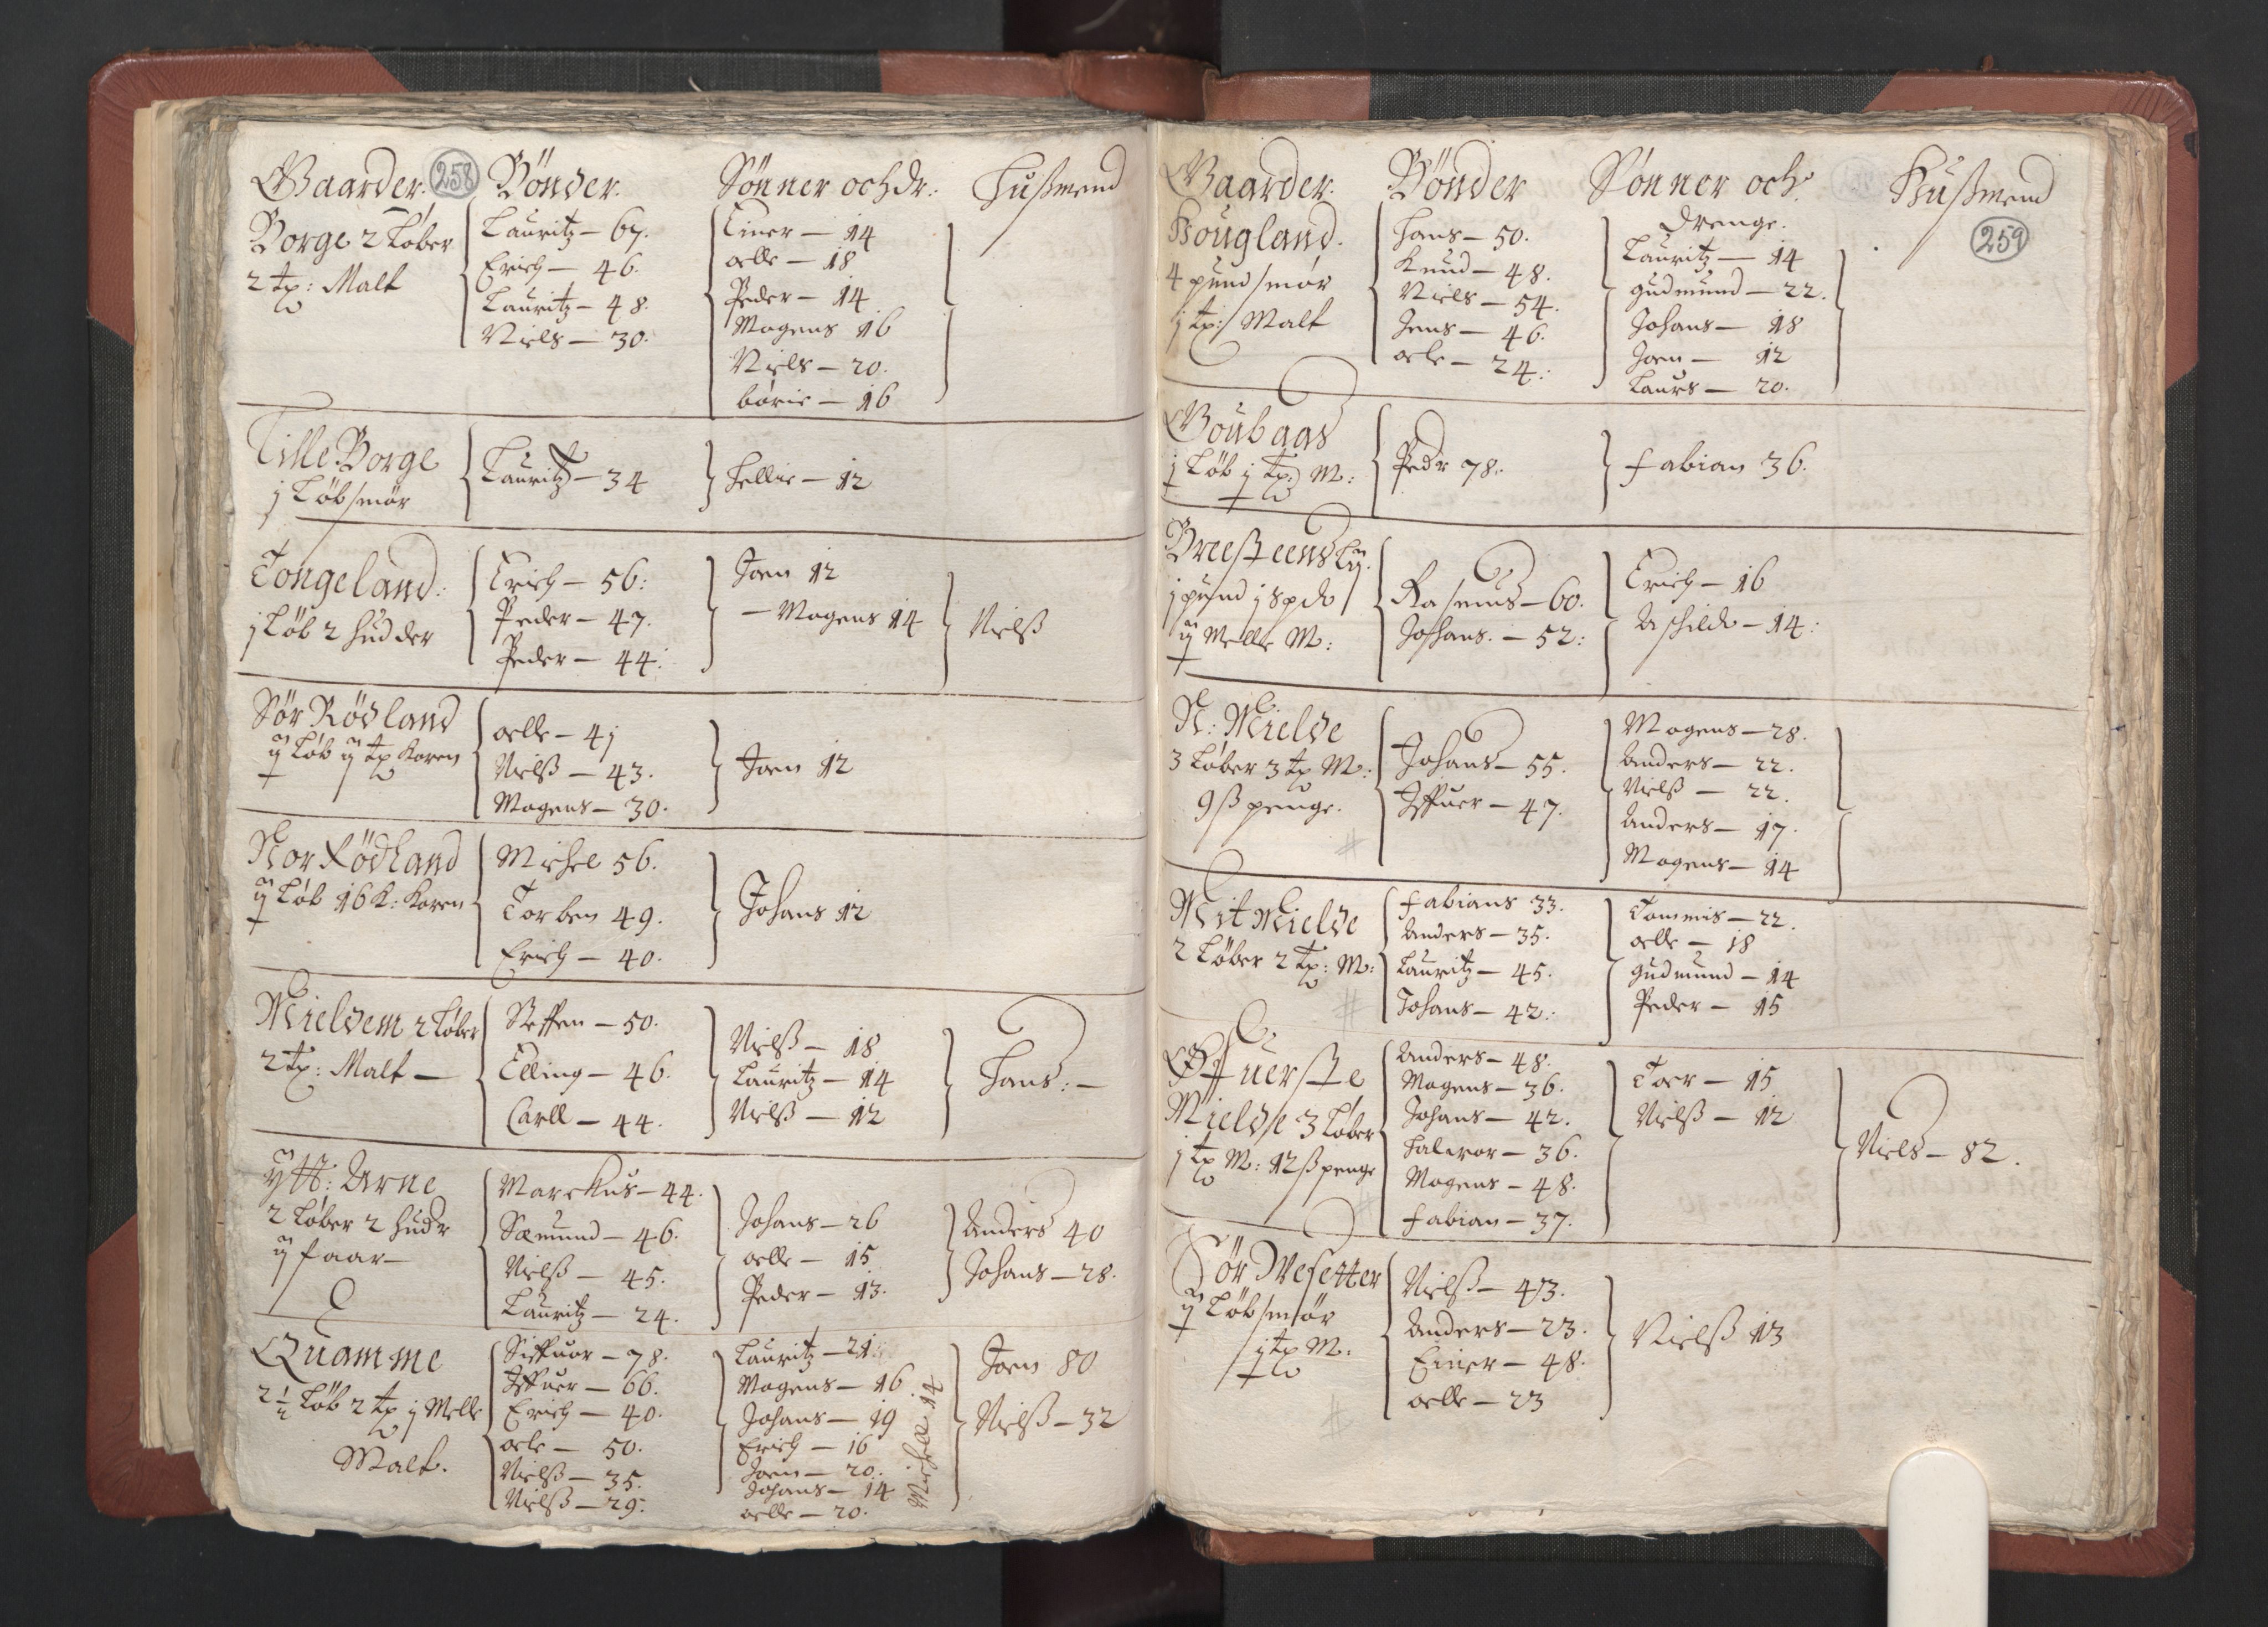 Gaarder. 258 Bönder. Sönner och dr: Hußmend
Borge 2 Løber
2 tp: Malt
Lauritz – 67.
Erich – 46.
Lauritz – 48.
Niels – 30.
Einer – 14
oelle – 18
Peder – 14
Mogens 16
Niels – 20.
børie – 16
Lille Borge
j Løb smör
Lauritz – 34
Hellie – 12
Tongeland:
j Løb 2 huder
Erich – 56:
Peder – 47.
Peder – 44:
Joen 12
– Mogens 14
Nielß
Sör Rödland
ÿ Løb ÿ tp Koren
oelle – 4j
Nielß – 43.
Mogens – 30.
Joen 12
Nor Rödland
ÿ Løb 16 K: Koren
Michel 56.
Torben 49.
Erich – 40.
Johans 12
Mieldem 2 Løber
2 tp: Malt –
Steffen – 50.
Elling – 46.
Carll – 44.
Nielß – 18
Lauritz – 14
Nielß – 12
Hans: –
ÿtt: Arne
2 Løber 2 hudr
ÿ faar –
Marckus – 44.
Sæmund – 46.
Nielß – 45.
Lauritz – 24.
Johans – 26
oelle – 15
Peder – 13.
Anders 40
Johans – 28.
Quamme
2 ½ Løb 2 tp j Melle
Malt.
Siffuor – 78.
Iffuer – 66.
Erich – 40.
oele – 50.
Nielß – 35.
Nielß – 29:
Lauritz – 21.
Mogens – 16.
Johans – 19
Erich – 16
Joen – 20.
Johans – 14
oelle – 20.
Michel 14
Joen 80
Nielß – 32
Gaarder. Bönder Sönner och Hußmend
drenge.
259
Hougland.
4 pund smör
j tp: Malt
Hans – 50.
Knud – 48.
Niels – 54.
Jens – 46.
oele – 24:
Lauritz – 14
gudmund – 22.
Johans – 18
Joen – 12
Laurs – 20.
Goubaas
j Løb j tp: M:
Pedr 78.
fabian 36.
Breesteens Lÿ.
j pund j spdr
ÿ Melle M:
Rasmus – 60.
Johans. – 52:
Erich – 16
Aschilde – 14:
N: Mielde
3 Løber 3 tp M:
9 ß penge.
Johans – 55.
Iffuer – 47.
Mogens – 28.
Anders – 22.
Nielß – 22.
Anders – 17.
Mogens – 14
Mit Mielde
2 Løber 2 tp: M:
fabians 33.
Anders – 35.
Lauritz – 45.
Johans – 42:
Tommis – 22.
oelle – 18
gudmund – 14
Peder – 15
Øffuerste
Mielde 3 Løber
j tp M: 12 ß penge
Anders – 48.
Mogens – 36.
Johans – 42.
Haluor – 36.
Mogens – 48.
fabian – 37.
Toer – 15
Nielß – 12
Niels – 82.
Sör Wesetter
ÿ Løb smör
j tp M:
Nielß – 43.
Anders – 23.
Einer – 48.
oelle – 23
Nielß 13